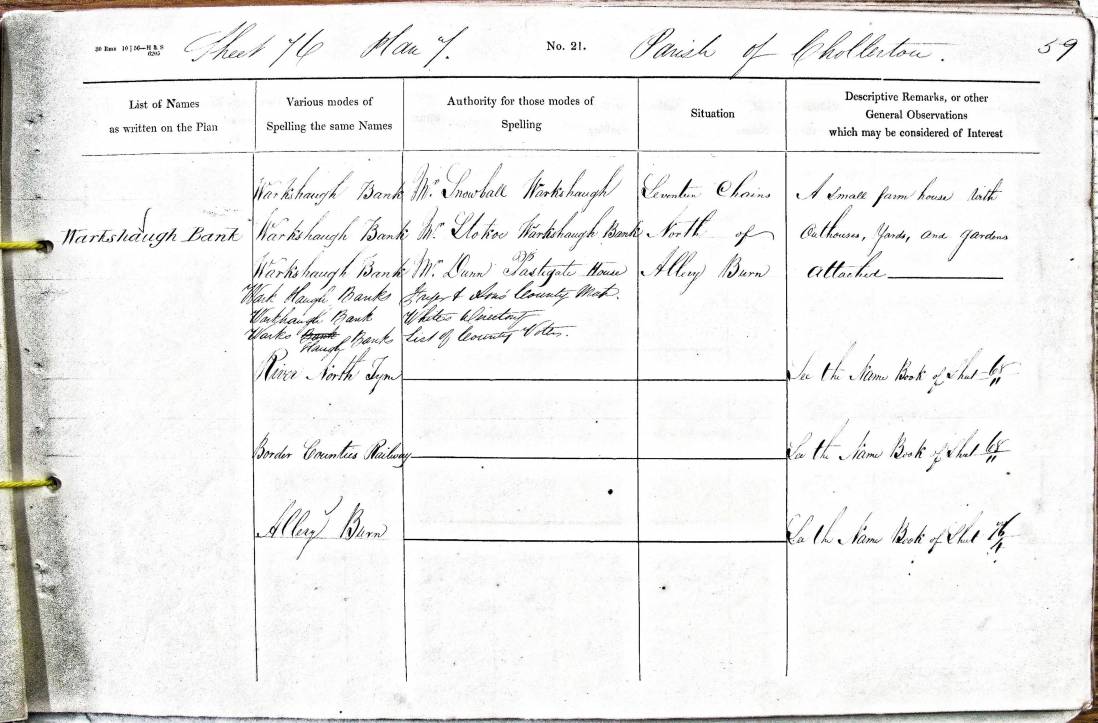 Sheet 76 Plan 7. No. 21. Parish of Chollerton. 59
List of Names
as written on the Plan
Various modes of
Spelling the same Names
Authority for those modes of
Spelling
Situation
Descriptive Remarks, or other
General Observations
which may be considered of Interest
Warkshaugh Bank Mr Snowball Warkshaugh Seventeen Chains A small farm house with
Warkshaugh Bank Warkshaugh Bank Mr Stokoe Warkshaugh Bank North of Outhouses, Yards, and gardens
Warkshaugh Bank Mr Dunn Pastigate House Allery Burn attached
Wark Haugh Banks Fryer & Sons County Map.
Warkhaugh Bank Whites Directory
Warks Haugh Banks List of County Voters.
River North Tyne See the Name Book of Sheet 68/11
Border Counties Railway See the Name Book of Sheet 68/11
Allery Burn See the Name Book of Sheet 76/4